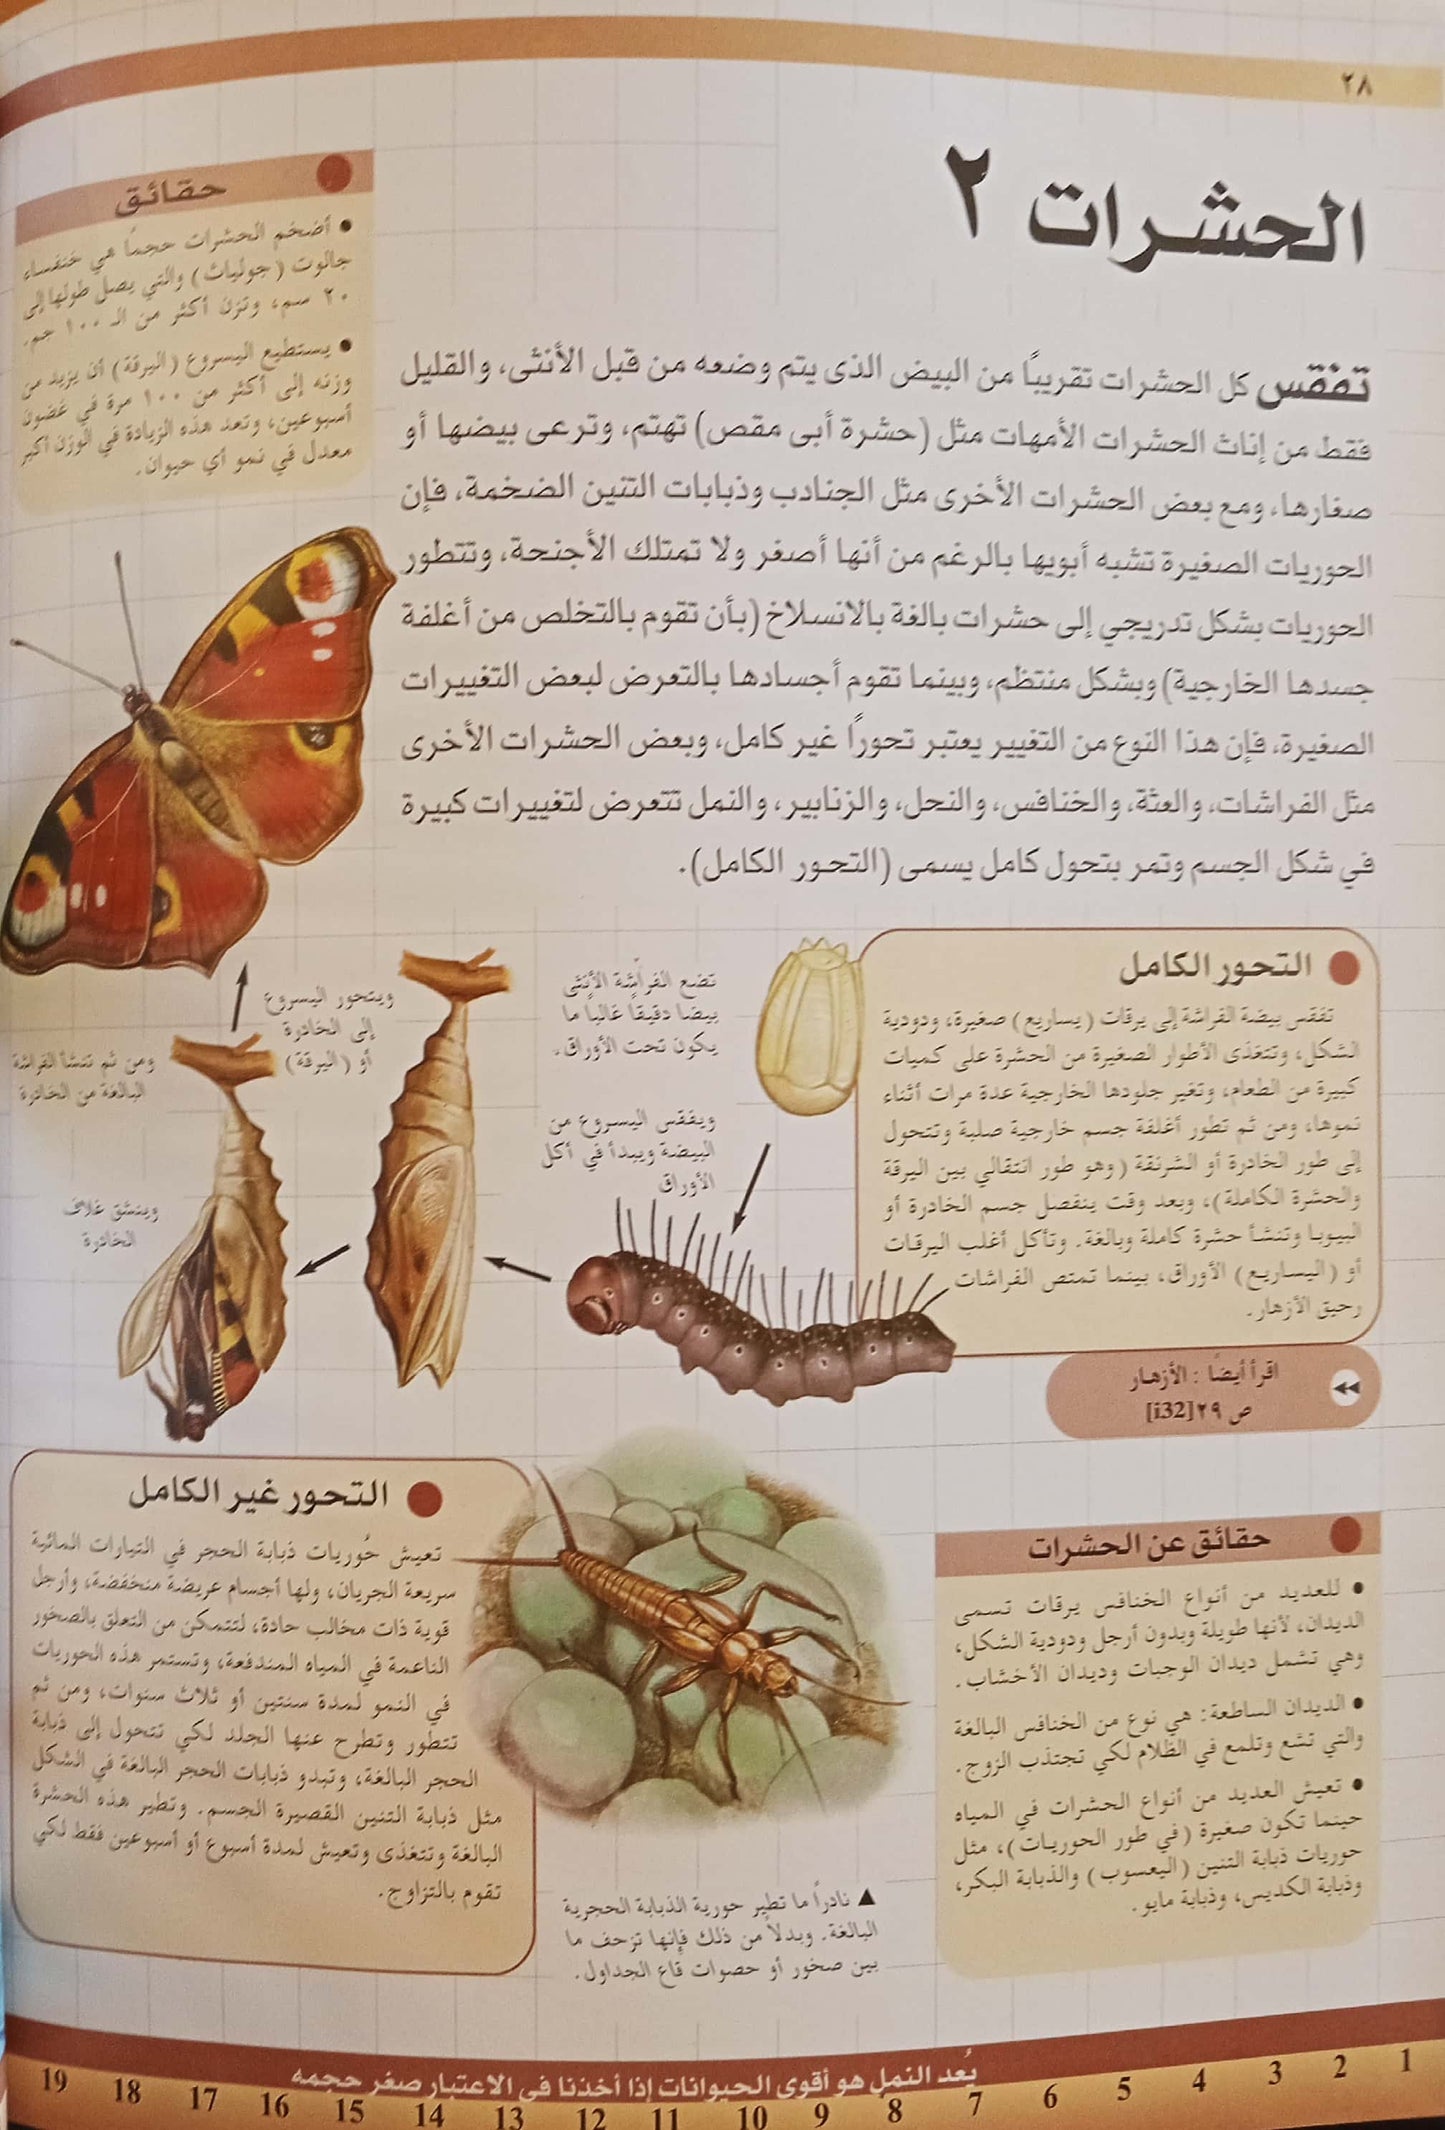 ٢٨
الحشرات ٢
تفقس كل الحشرات تقريباً من البيض الذى يتم وضعه من قبل الأنثى، والقليل
فقط من إناث الحشرات الأمهات مثل (حشرة أبى مقص) تهتم، وترعى بيضها أو
صغارها، ومع بعض الحشرات الأخرى مثل الجنادب وذبابات التنين الضخمة، فإن
الحوريات الصغيرة تشبه أبويها بالرغم من أنها أصغر ولا تمتلك الأجنحة، وتتطور
الحوريات بشكل تدريجي إلى حشرات بالغة بالانسلاخ (بأن تقوم بالتخلص من أغلفة
جسدها الخارجية) وبشكل منتظم، وبينما تقوم أجسادها بالتعرض لبعض التغييرات
الصغيرة، فإن هذا النوع من التغيير يعتبر تحوراً غير كامل، وبعض الحشرات الأخرى
مثل الفراشات، والعثة، والخنافس، والنحل، والزنابير، والنمل تتعرض لتغييرات كبيرة
في شكل الجسم وتمر بتحول كامل يسمى (التحور الكامل).
حقائق
• أضخم الحشرات حجماً هي خنفساء
جالوت (جوليات) والتي يصل طولها إلى
٢٠ سم، وتزن أكثر من الـ ١٠٠ جم.
• يستطيع اليسروع (اليرقة) أن يزيد من
وزنه إلى أكثر من ١٠٠ مرة في غضون
أسبوعين، وتعد هذه الزيادة في الوزن أكبر
معدل في نمو أي حيوان.
التحور الكامل
تفقس بيضة الفراشة إلى يرقات (يساريع) صغيرة، ودودية
الشكل، وتتغذى الأطوار الصغيرة من الحشرة على كميات
كبيرة من الطعام، وتغير جلودها الخارجية عدة مرات أثناء
نموها، ومن ثم تطور أغلفة جسم خارجية صلبة وتتحول
إلى طور الخادرة أو الشرنقة (وهو طور انتقالي بين اليرقة
والحشرة الكاملة)، وبعد وقت ينفصل جسم الخادرة أو
البيوبا وتنشأ حشرة كاملة وبالغة. وتأكل أغلب اليرقات
أو (اليساريع) الأوراق، بينما تمتص الفراشات
رحيق الأزهار.
اقرأ أيضاً : الأزهار
ص ٢٩[i32]
تضع الفراشة الأنثى
بيضا دقيقاً غالباً ما
يكون تحت الأوراق.
ويفقس اليسروع من
البيضة ويبدأ في أكل
الأوراق
ويتحور اليسروع
إلى الخادرة
أو (اليرقة)
وينشق غلاف
الخادرة
ومن ثم تنشأ الفراشة
البالغة من الخادرة
حقائق عن الحشرات
• للعديد من أنواع الخنافس يرقات تسمى
الديدان، لأنها طويلة وبدون أرجل ودودية الشكل،
وهي تشمل ديدان الوجبات وديدان الأخشاب.
• الديدان الساطعة: هي نوع من الخنافس البالغة
والتي تشع وتلمع في الظلام لكي تجتذب الزوج.
• تعيش العديد من أنواع الحشرات في المياه
حينما تكون صغيرة (في طور الحوريات)، مثل
حوريات ذبابة التنين (اليعسوب) والذبابة البكر،
وذبابة الكديس، وذبابة مايو.
التحور غير الكامل
تعيش حُوريات ذبابة الحجر في التيارات المائية
سريعة الجريان، ولها أجسام عريضة منخفضة، وأرجل
قوية ذات مخالب حادة، لتتمكن من التعلق بالصخور
الناعمة في المياه المندفعة، وتستمر هذه الحوريات
في النمو لمدة سنتين أو ثلاث سنوات، ومن ثم
تتطور وتطرح عنها الجلد لكي تتحول إلى ذبابة
الحجر البالغة، وتبدو ذبابات الحجر البالغة في الشكل
مثل ذبابة التنين القصيرة الجسم. وتطير هذه الحشرة
البالغة وتتغذى وتعيش لمدة أسبوع أو أسبوعين فقط لكي
تقوم بالتزاوج.
▲ نادراً ما تطير حورية الذبابة الحجرية
البالغة. وبدلاً من ذلك فإنها تزحف ما
بين صخور أو حصوات قاع الجداول.
يُعد النمل هو أقوى الحيوانات إذا أخذنا فى الاعتبار صغر حجمه
1 2 3 4 5 6 7 8 9 10 11 12 13 14 15 16 17 18 19